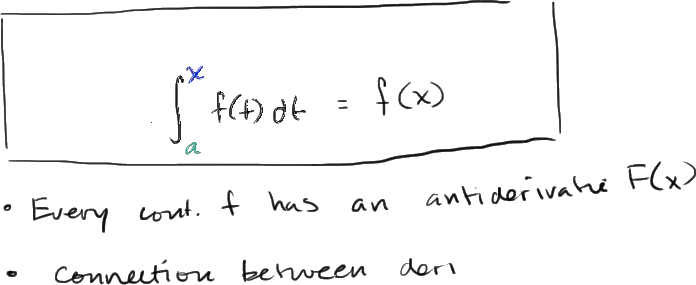 ∫ₐˣ f(t) dt = f(x)
• Every cont. f has an antiderivative F(x)
• Connection between deri